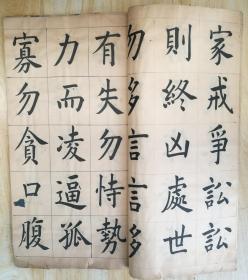 家戒爭訟訟
則終凶處世
勿多言言多
有失勿恃勢
力而凌逼孤
寡勿貪口腹